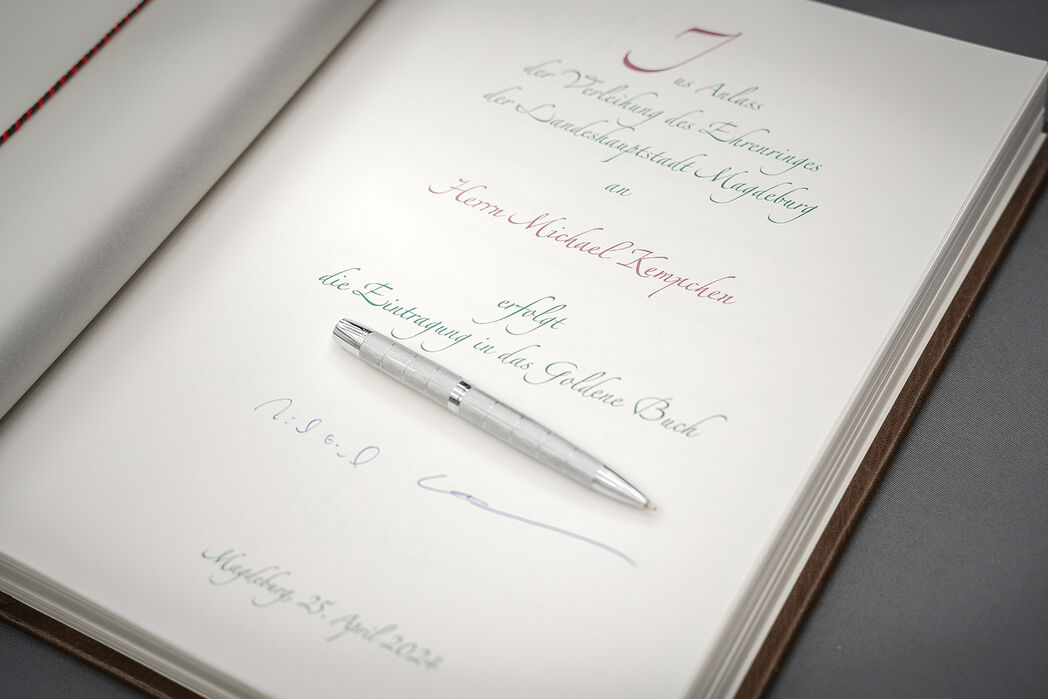 Jus Anlass
der Verleihung des Ehrenringes
der Landeshauptstadt Magdeburg
an
Herrn Michael Kempchen
erfolgt
die Eintragung in das Goldene Buch
Magdeburg, 25. April 2024